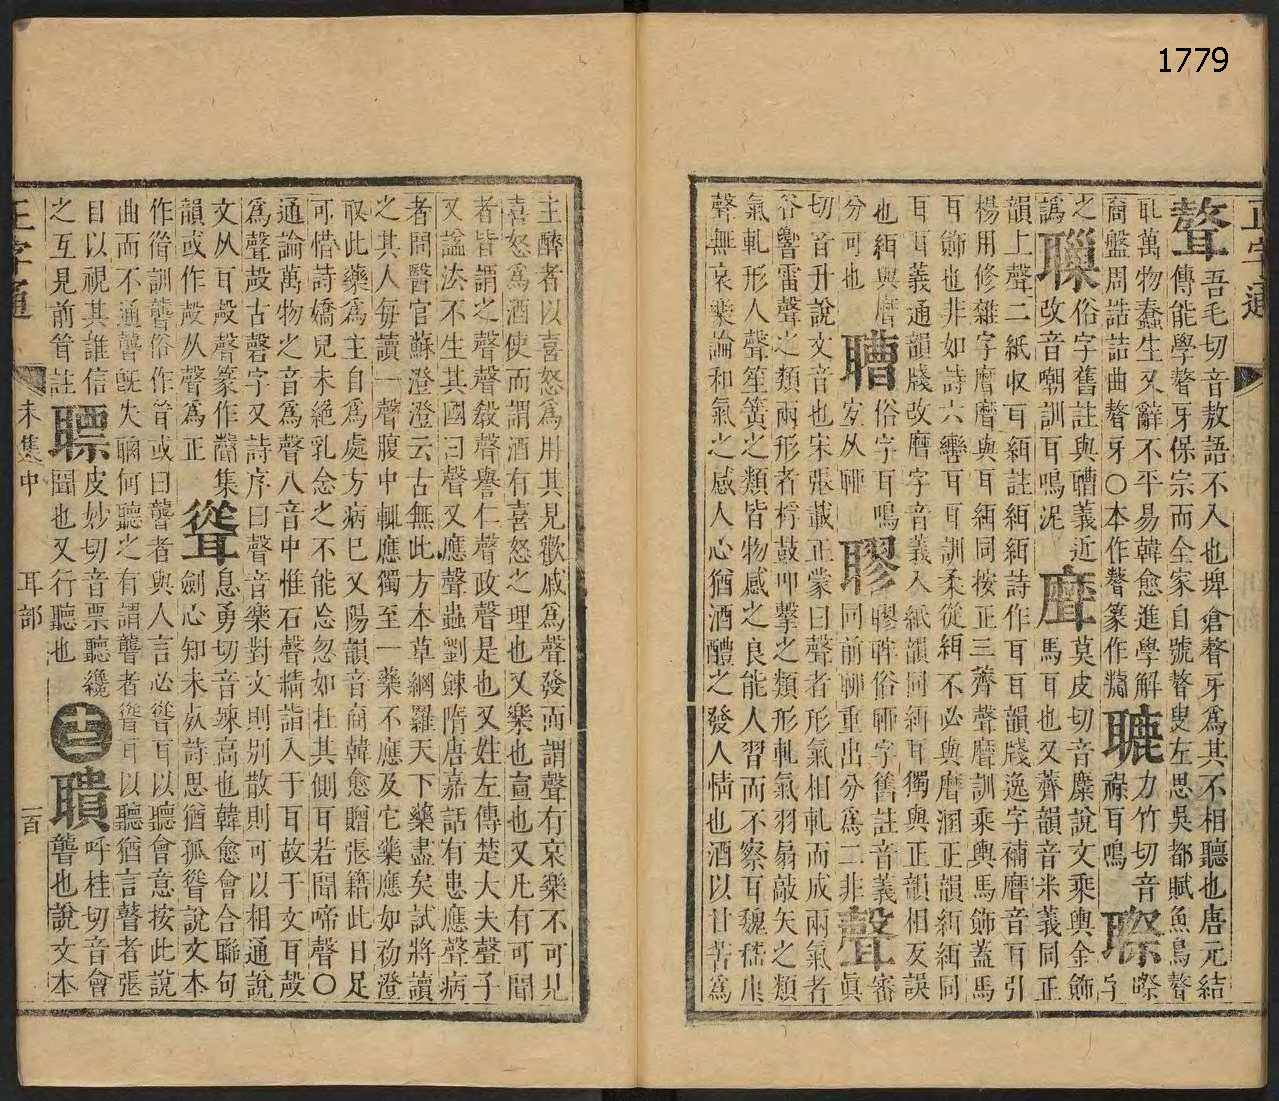 1779
正字通
聱
吾毛切音敖語不入也埤倉聱牙爲其不相聽也唐元結
傳能學聱牙保宗而全家自號聱叟左思吳都賦魚鳥聱
耴萬物蠢生又辭不平易韓愈進學解
裔盤周誥詰曲聱牙〇本作篆作
力竹切音
祿耳鳴
聺
字
之
譌
俗字舊註與聸義近
改音嘲訓耳鳴泥
莫皮切音糜說文乘輿金飾
馬耳也又薺韻音米義同正
韻上聲二紙収耳緝註緝緝詩作耳耳韻牋逸字補音耳引
楊用修雜字與耳緬同按正三薺聲訓乘輿馬飾蓋馬
耳飾也非如詩六轡耳耳訓柔從緬不必與溷正韻緬緬同
耳耳義通韻牋改字音義入紙韻同緬耳獨與正韻相反誤
也緬與
分可也
俗字耳鳴
宜从
俗字舊註音義
同前聊重出分爲二非
聲
審
眞
切音升說文音也宋張載正蒙曰聲者形氣相軋而成兩氣者
谷響雷聲之類兩形者桴鼓叩擊之類形軋氣羽扇敲矢之類
氣軋形人聲笙簧之類皆物感之良能人習而不察耳魏嵇康
聲無哀樂論和氣之感人心猶酒醴之發人情也酒以甘苦爲
主醉者以喜怒爲用其見歡戚爲聲發而謂聲有哀樂不可見
喜怒爲酒使而謂酒有喜怒之理也又樂也宣也又凡有可聞
者皆謂之聲聲敎聲譽仁聲政聲是也又姓左傳楚大夫聲子
又諡法不生其國曰聲又應聲蟲劉餗隋唐嘉話有患應聲病
者問醫官蘇澄澄云古無此方本草綱羅天下藥盡矣試將讀
之其人每讀一聲腹中輒應獨至一藥不應及它藥應如初澄
取此藥爲主自爲處方病巳又陽韻音商韓愈贈張籍此日足
可惜詩嬌兒未絕乳念之不能忘忽如在其側耳若聞啼聲〇
通論萬物之音爲聲八音中惟石聲精詣入于耳故于文耳殸
爲聲殸古磬字又詩序曰聲音樂對文則別散則可以相通說
文从耳殸聲篆作集
韻或作殸从聲爲正
聳
息勇切音竦高也韓愈會合聯句
劍心知未死詩思猶孤聳說文本
作訓聾俗作或曰聾者與人言必聳耳以聽會意按此說
曲而不通聾旣失聰何聽之有謂聾者聳耳以聽猶言瞽者張
目以視其誰信
之互見前註
聞也又行聽也
皮妙切音票聽纔
十二
聵
呼桂切音會
聾也說文本
正字通
未集中
耳部
一百